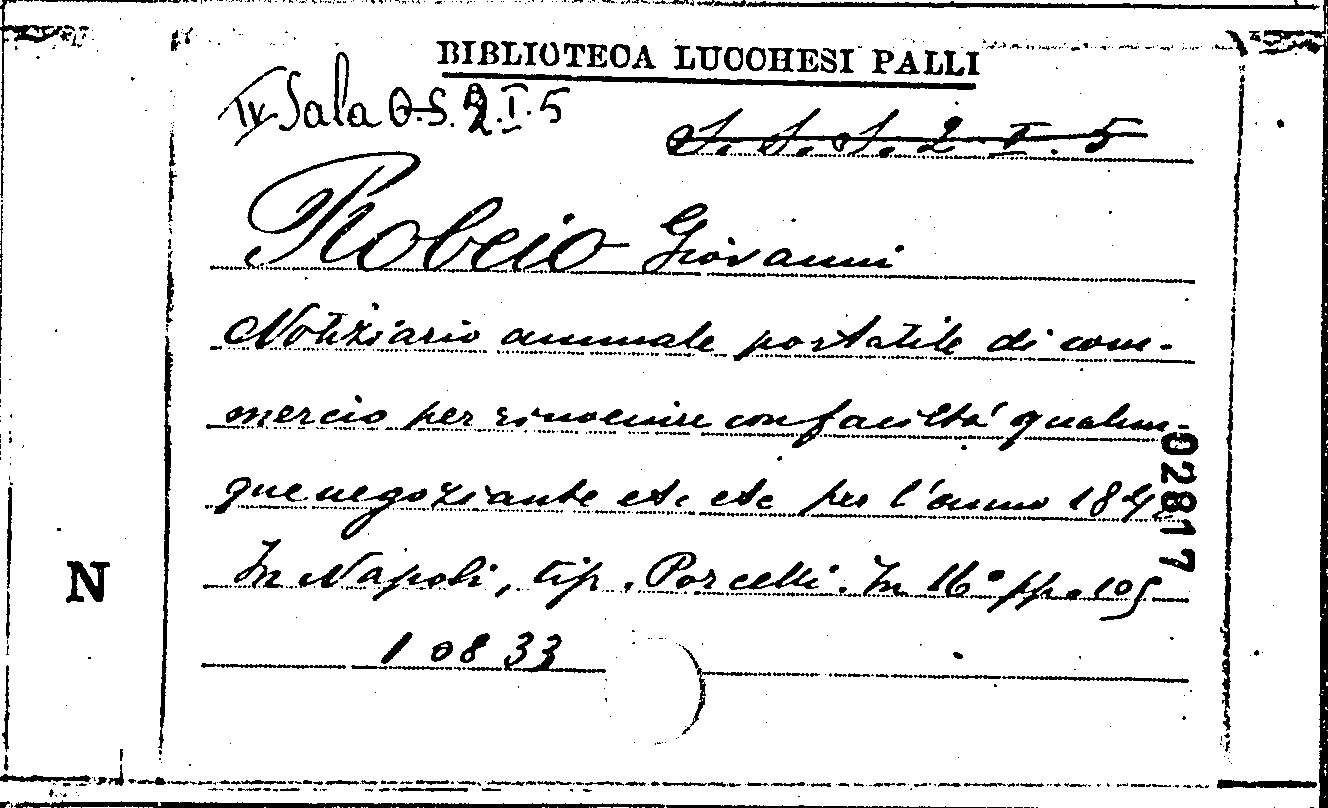 BIBLIOTECA LUCCHESI PALLI
IV Sala O.S. 2.I.5
S. S. S. 2 I. 5
Robcio Giovanni
Notiziario annuale portatile di com-
mercio per rinvenire con faciltà qualun-
que negoziante etc etc per l'anno 184
In Napoli, tip. Porcelli. In 16° pp. 105
10833
02817
N